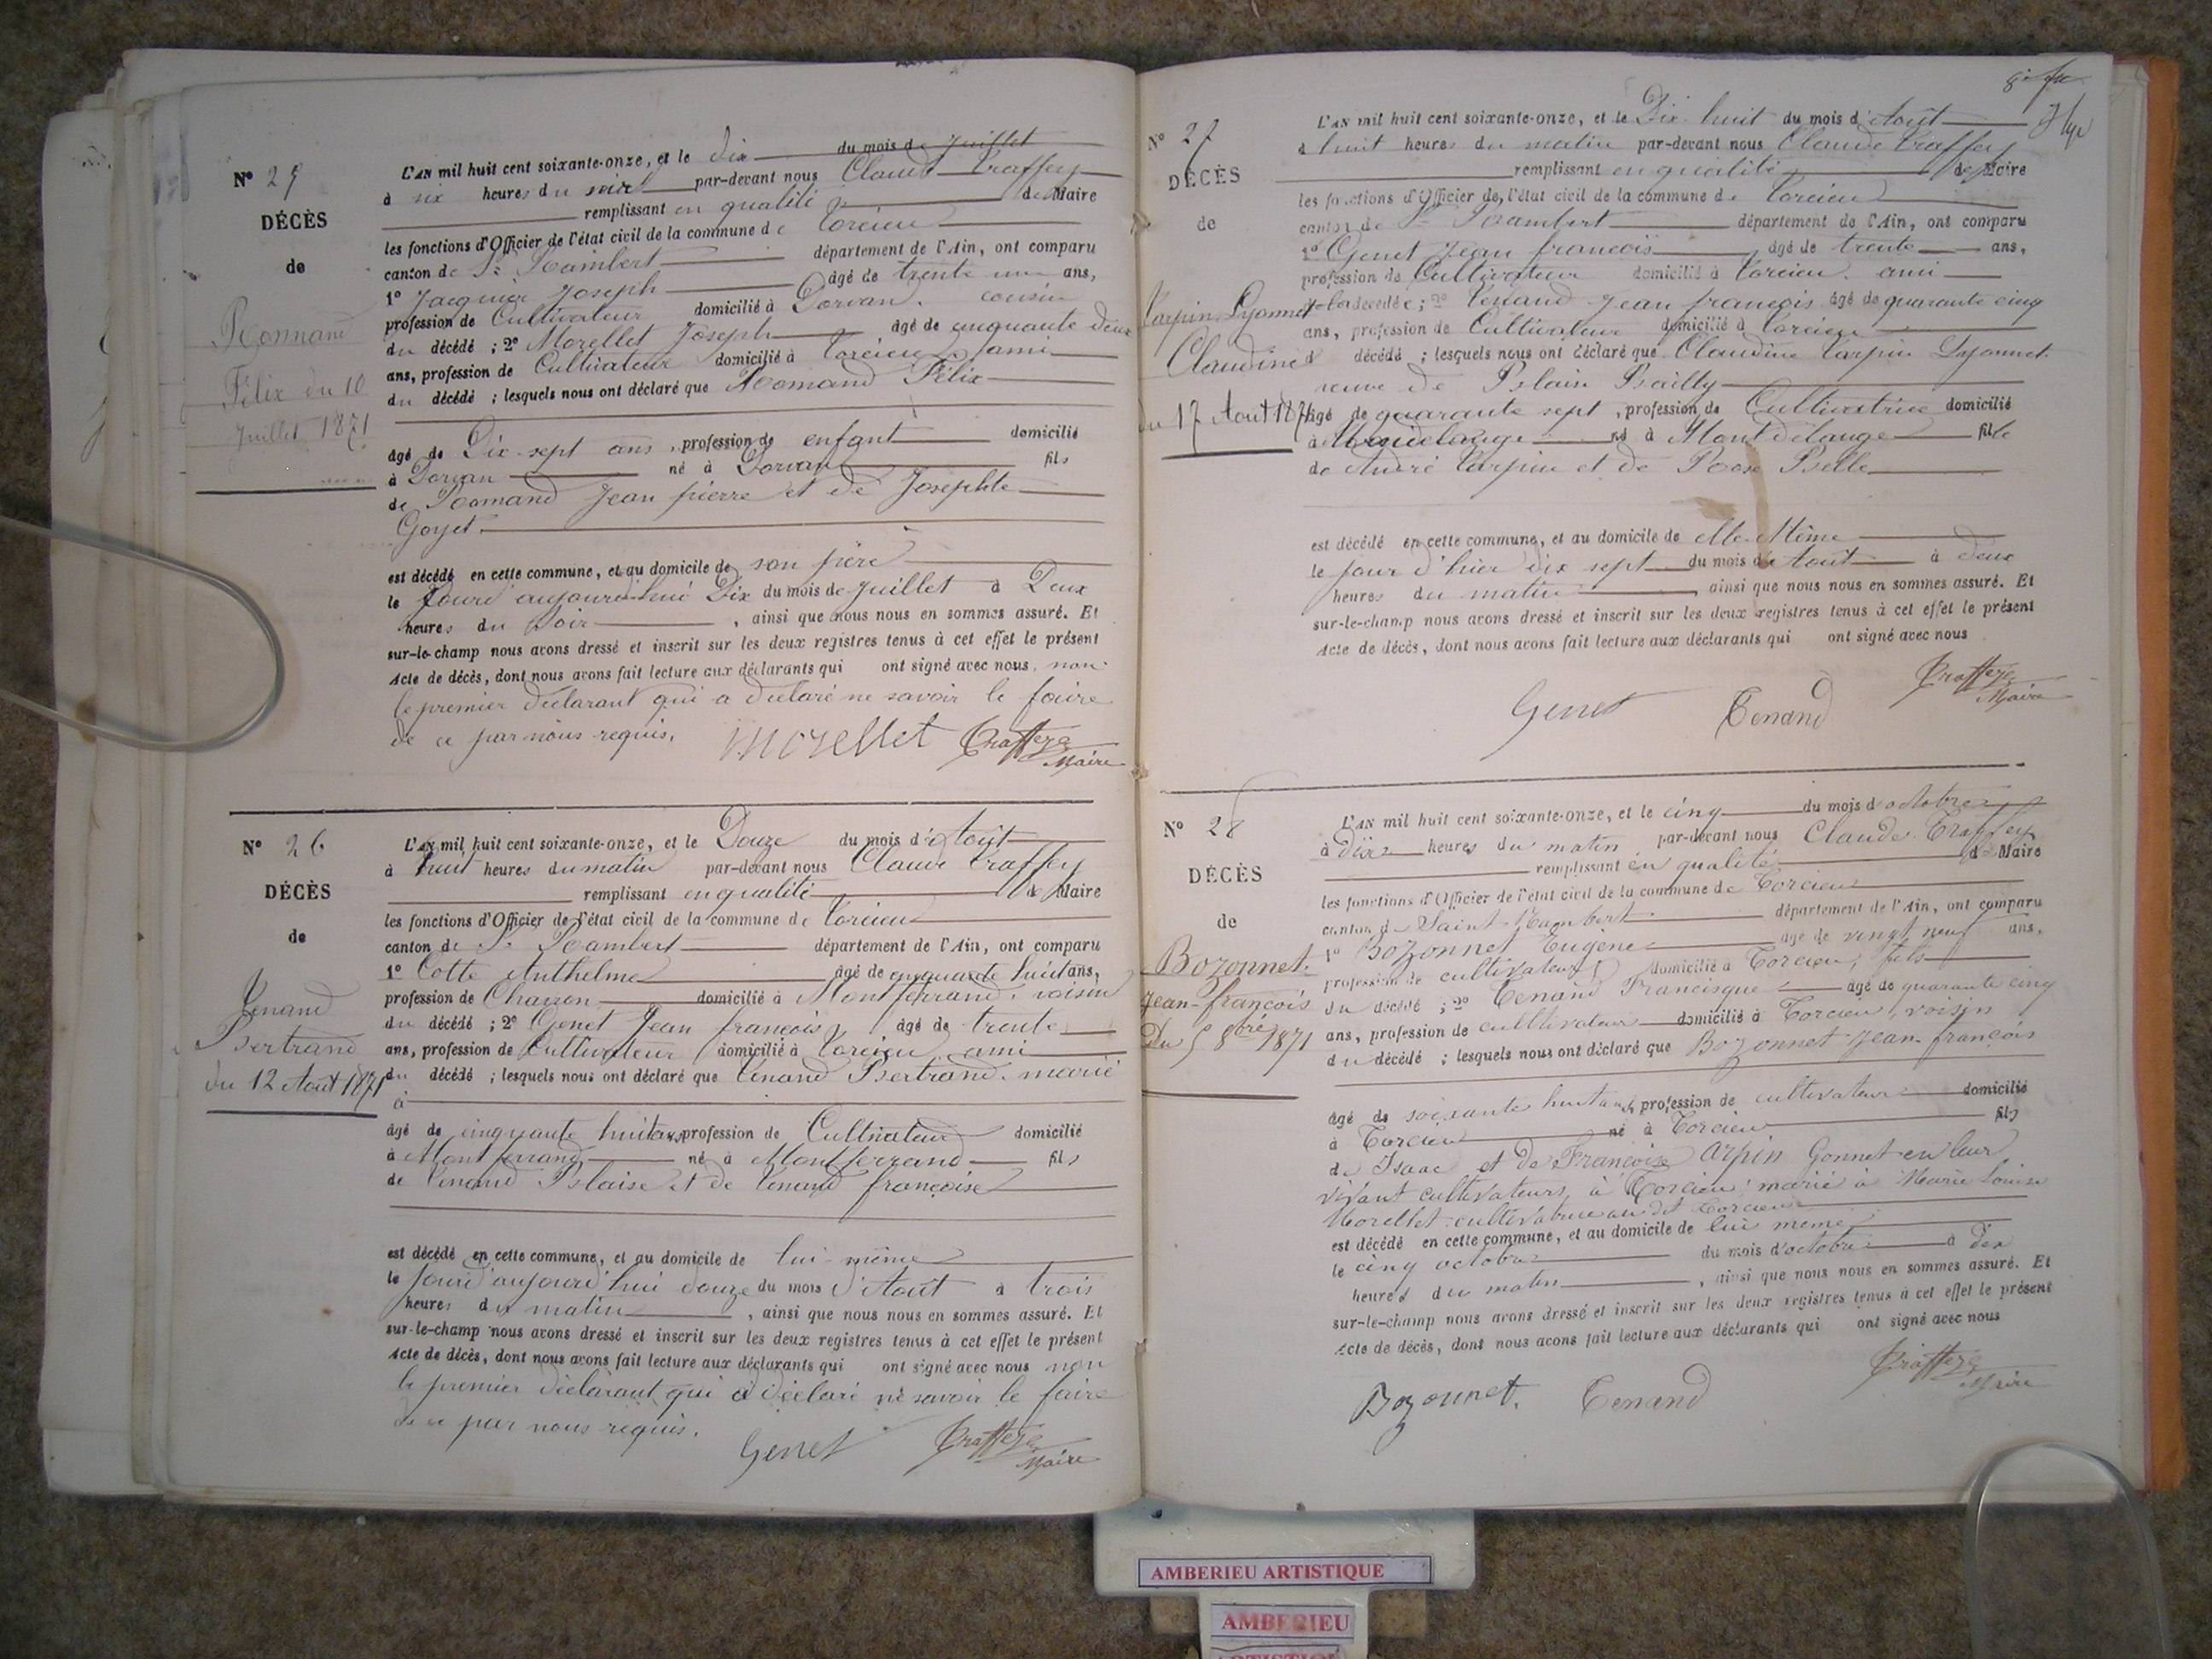 N° 25
DÉCÈS
de
Romand
Félix du 10
Juillet 1871
L'AN mil huit cent soixante-onze, et le dix du mois de Juillet
à six heures du soir par-devant nous Claude Traffey
remplissant en qualité de Maire
les fonctions d'Officier de l'état civil de la commune de Torcieu
canton de St Rambert département de l'Ain, ont comparu
1° Jacquier Joseph âgé de trente un ans,
profession de Cultivateur domicilié à Dorvan. cousin
du décédé ; 2° Morellet Joseph âgé de cinquante deux
ans, profession de Cultivateur domicilié à Torcieu, ami
du décédé ; lesquels nous ont déclaré que Romand Félix
âgé de Dix-sept ans, profession de enfant domicilié
à Dorvan né à Dorvan fils
de Romand Jean pierre et de Josephte
Goyet
est décédé en cette commune, et au domicile de son père
le Jourd'aujourd'hui Dix du mois de Juillet à Deux
heures du Soir, ainsi que nous nous en sommes assuré. Et
sur-le-champ nous avons dressé et inscrit sur les deux registres tenus à cet effet le présent
Acte de décès, dont nous avons fait lecture aux déclarants qui ont signé avec nous, non
le premier déclarant qui a déclaré ne savoir le faire
de ce par nous requis.
Morellet Traffey
Maire
N° 26
DÉCÈS
de
Tenand
Bertrand
du 12 Août 1871
L'AN mil huit cent soixante-onze, et le Douze du mois d'Août
à huit heures du matin par-devant nous Claude Traffey
remplissant en qualité de Maire
les fonctions d'Officier de l'état civil de la commune de Torcieu
canton de St Rambert département de l'Ain, ont comparu
1° Cotte Anthelme âgé de cinquante huit ans,
profession de Charron domicilié à Montferrand, voisin
du décédé ; 2° Genet Jean françois âgé de trente
ans, profession de Cultivateur domicilié à Torcieu ami
du décédé ; lesquels nous ont déclaré que Tenand Bertrand, marié
à
âgé de cinquante huit ans, profession de Cultivateur domicilié
à Montferrand né à Montferrand fils
de Tenand Blaise et de Tenand françoise
est décédé en cette commune, et au domicile de lui-même
le Jourd'aujourd'hui douze du mois d'Août à trois
heures du matin, ainsi que nous nous en sommes assuré. Et
sur-le-champ nous avons dressé et inscrit sur les deux registres tenus à cet effet le présent
Acte de décès, dont nous avons fait lecture aux déclarants qui ont signé avec nous non
le premier déclarant qui a déclaré ne savoir le faire
de ce par nous requis.
Genet Traffey
Maire
N° 27
DÉCÈS
de
Tarpin Lyonnet
Claudine
du 17 Août 1871
L'AN mil huit cent soixante-onze, et le Dix-huit du mois d'Août
à huit heures du matin par-devant nous Claude Traffey
remplissant en qualité de Maire
les fonctions d'Officier de l'état civil de la commune de Torcieu
canton de St Rambert département de l'Ain, ont comparu
1° Genet Jean françois âgé de trente ans,
profession de Cultivateur domicilié à Torcieu. ami
de la décédée ; 2° Tenand Jean françois âgé de quarante cinq
ans, profession de Cultivateur domicilié à Torcieu
d décédé ; lesquels nous ont déclaré que Claudine Tarpin Lyonnet
veuve de Blain Bailly
âgé de quarante sept, profession de Cultivatrice domicilié
à Montdelange né à Montdelange fille
de André Tarpin et de Rose Belle
est décédé en cette commune, et au domicile de elle-Même
le jour d'hier dix sept du mois de Août à deux
heures du matin ainsi que nous nous en sommes assuré. Et
sur-le-champ nous avons dressé et inscrit sur les deux registres tenus à cet effet le présent
Acte de décès, dont nous avons fait lecture aux déclarants qui ont signé avec nous
Genet Tenand Traffey
Maire
N° 28
DÉCÈS
de
Bozonnet.
Jean-françois
Du 5 8bre 1871
L'AN mil huit cent soixante-onze, et le cinq du mois d'octobre
à dix heures du matin par-devant nous Claude Traffey
remplissant en qualité de Maire
les fonctions d'Officier de l'état civil de la commune de Torcieu
canton de Saint-Rambert département de l'Ain, ont comparu
1° Bozonnet Eugène âgé de vingt neuf ans,
profession de cultivateur domicilié à Torcieu, fils
du décédé ; 2° Tenand Francisque âgé de quarante cinq
ans, profession de cultivateur domicilié à Torcieu, voisin
du décédé ; lesquels nous ont déclaré que Bozonnet Jean-françois
âgé de soixante huit ans, profession de cultivateur domicilié
à Torcieu né à Torcieu fils
de Isaac et de Françoise Arpin Gonnet en leur
vivant cultivateurs à Torcieu; marié à Marie Louise
Morellet cultivatrice au dit Torcieu
est décédé en cette commune, et au domicile de lui même
le cinq octobre du mois d'octobre à dix
heures du matin, ainsi que nous nous en sommes assuré. Et
sur-le-champ nous avons dressé et inscrit sur les deux registres tenus à cet effet le présent
Acte de décès, dont nous avons fait lecture aux déclarants qui ont signé avec nous
Bozonnet. Tenand Traffey
Maire
AMBERIEU ARTISTIQUE
AMBERIEU
ARTISTIQUE